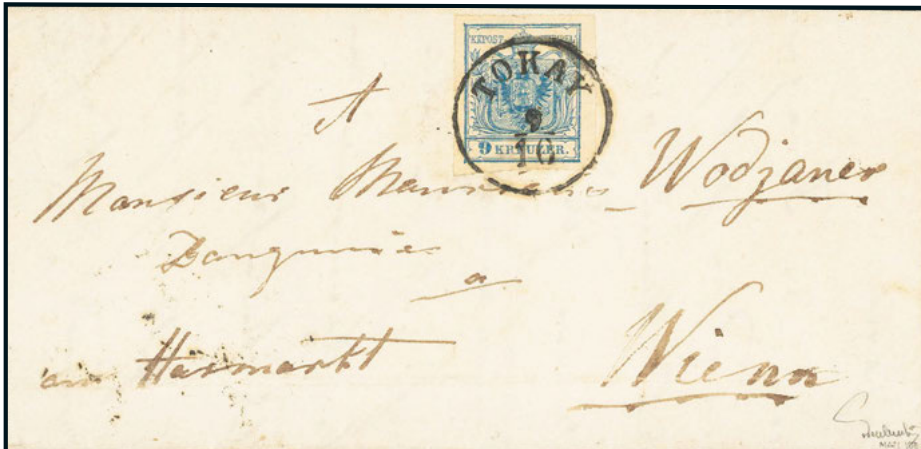 KKPOST-STEMPEL
TOKAY
9
10
9 KREUZER.
A
Monsieur Wodjaner
Banquier
a
am Harmarkt
Wienn